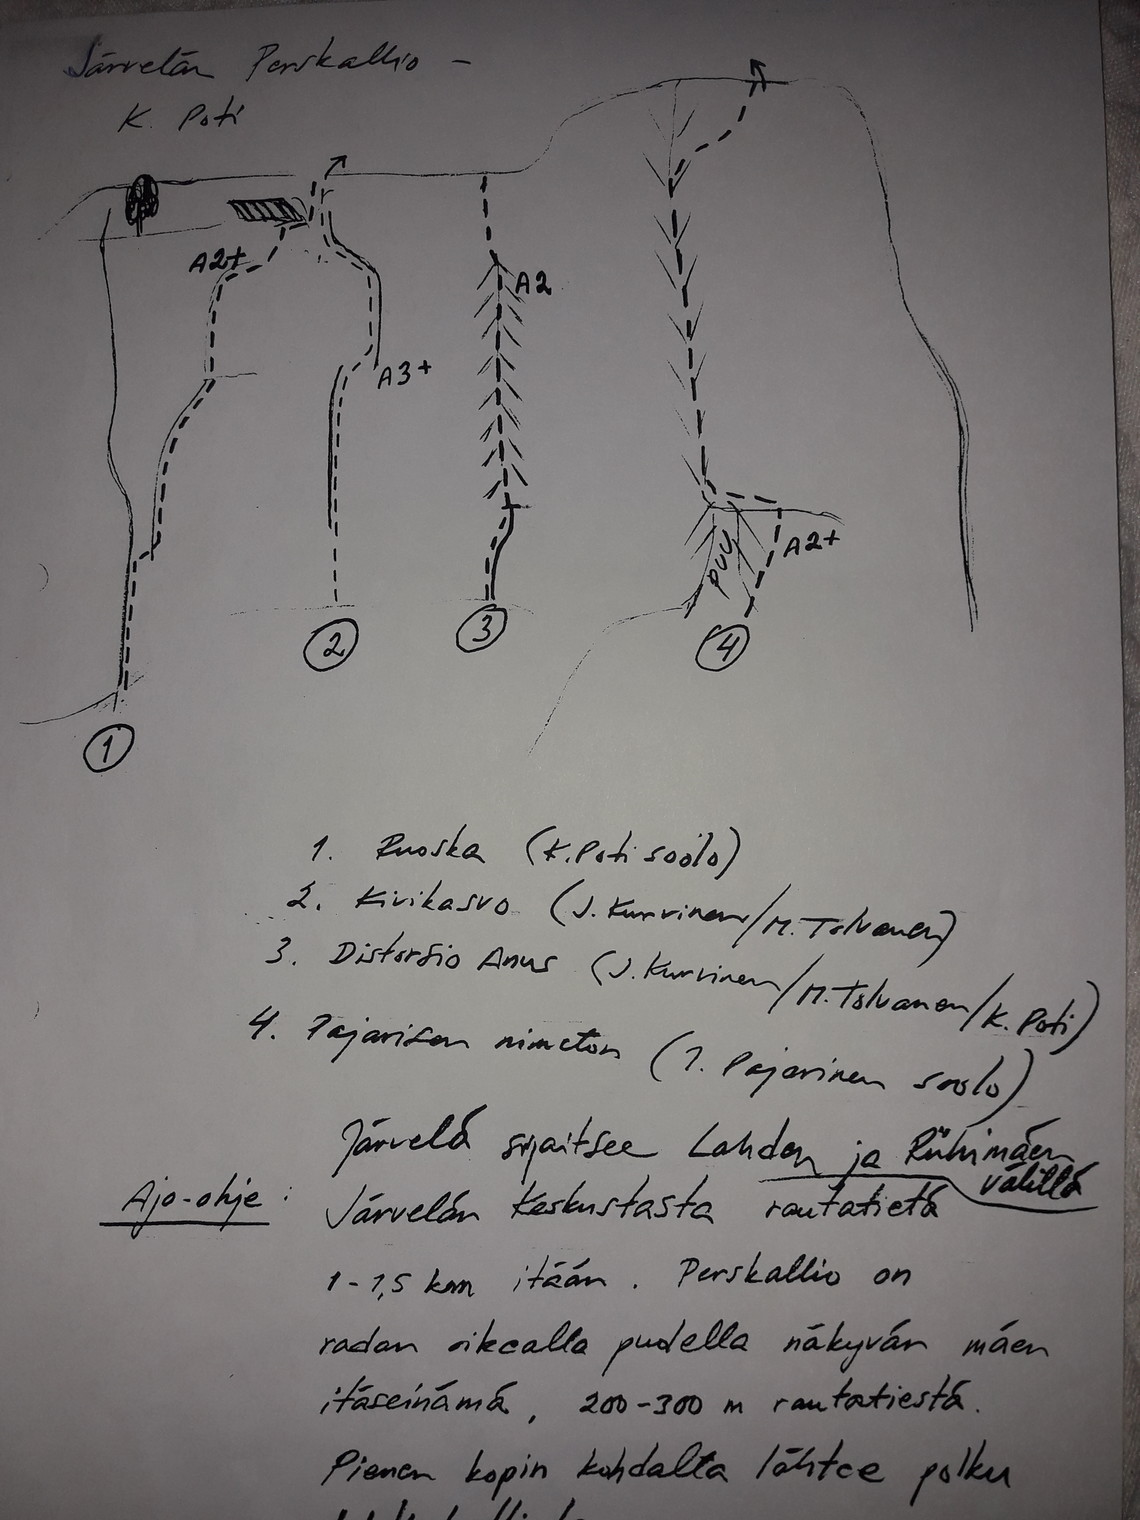 Järvelän Perskallio -
K. Poti
A2+
A2
A3+
PUU
A2+
1
2
3
4
1. Ruoska (K. Poti soolo)
2. Kivikasvo (J. Kurvinen/M. Tolvanen)
3. Distorsio Anus (J. Kurvinen/M. Tolvanen/K. Poti)
4. Pajarisen nimetön (J. Pajarinen soolo)
Järvelä sijaitsee Lahden ja Riihimäen
välillä
Ajo-ohje: Järvelän keskustasta rautatietä
1-1,5 km itään. Perskallio on
radan oikealla puolella näkyvän mäen
itäseinämä, 200-300 m rautatiestä.
Pienen kopin kohdalta lähtee polku